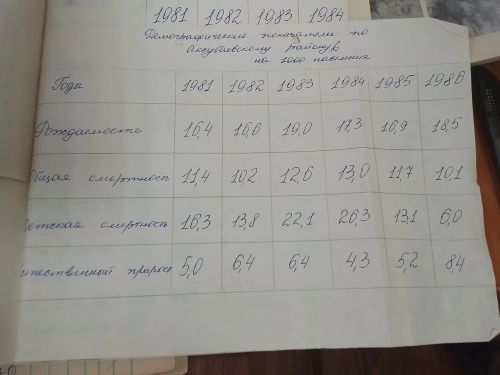 1981 1982 1983 1984
Демографические показатели по
Аксубаевскому району
на 1000 населения
Года 1981 1982 1983 1984 1985 1986
Рождаемость 16,4 16,6 19,0 17,3 16,9 18,5
Общая смертность 11,4 10,2 12,6 13,0 11,7 10,1
етская смертность 16,3 13,8 22,1 26,3 13,1 6,0
тественный прирост 5,0 6,4 6,4 4,3 5,2 8,4